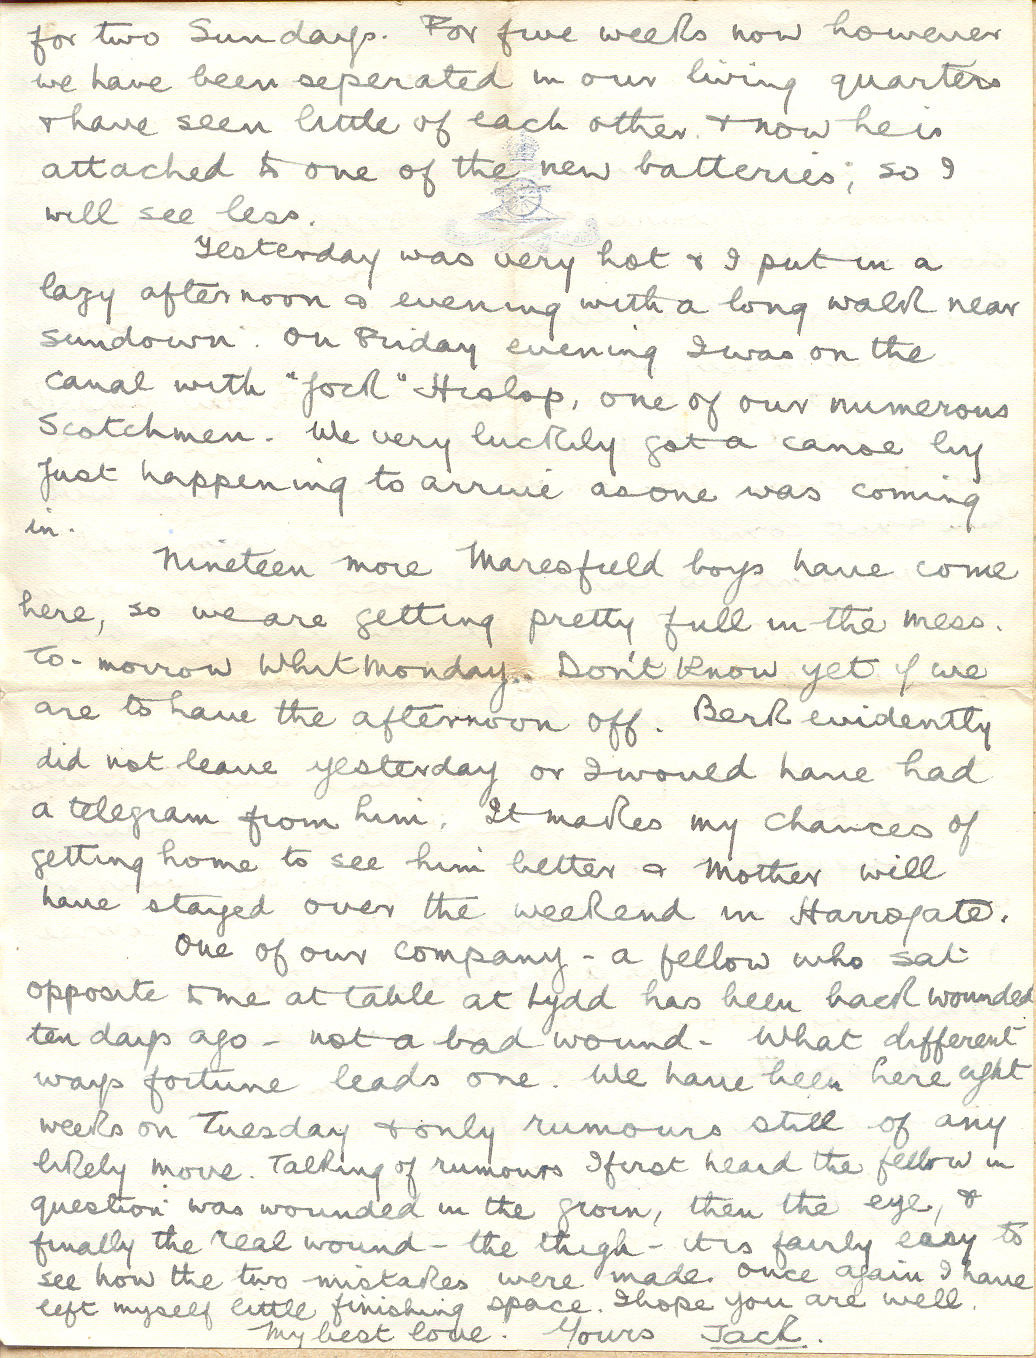 for two Sundays. For five weeks now however
we have been seperated in our living quarters
& have seen little of each other. & now he is
attached to one of the new batteries; so I
will see less.
Yesterday was very hot & I put in a
lazy afternoon & evening with a long walk near
sundown. On Friday evening I was on the
canal with "Jock" Hislop, one of our numerous
Scotchmen. We very luckily got a canoe by
just happening to arrive as one was coming
in.
Nineteen more Maresfield boys have come
here, so we are getting pretty full in the mess.
To-morrow Whit Monday. Don't know yet if we
are to have the afternoon off. Berk evidently
did not leave yesterday or I would have had
a telegram from him. It makes my chances of
getting home to see him better & Mother will
have stayed over the weekend in Harrogate.
One of our company - a fellow who sat
opposite to me at table at Lydd has been back wounded
ten days ago - not a bad wound - What different
ways fortune leads one. We have been here eight
weeks on Tuesday & only rumours still of any
likely move. Talking of rumours I first heard the fellow in
question was wounded in the groin, then the eye, &
finally the real wound - the thigh - it is fairly easy to
see how the two mistakes were made. Once again I have
left myself little finishing space. I hope you are well.
My best love. Yours Jack.